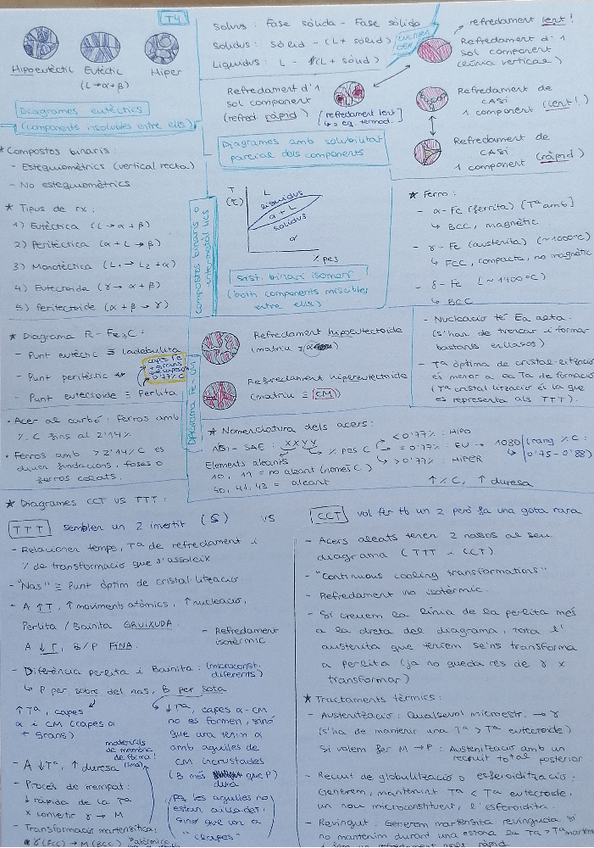 T4
Hipoeutèctic
Eutèctic
Hiper
(L → α + β)
Diagrames eutèctics
(components insolubles entre ells)
* Compostos binaris:
- Estequiomètrics (vertical recta)
- No estequiomètrics
* Tipus de rx:
1) Eutèctica (L → α + β)
2) Peritèctica (α + L → β)
3) Monotèctica (L₁ → L₂ + α)
4) Eutectoide (γ → α + β)
5) Peritectoide (α + β → γ)
Solvus: Fase sòlida - Fase sòlida
Solidus: Sòlid - (L + sòlid)
Liquidus: L - (L + sòlid)
Refredament d'1
sol component
(refred ràpid)
[refredament lent
eq termod.]
Diagrames amb solubilitat
parcial dels components
T
(ºC)
L
liquidus
α + L
solidus
α
% pes
Sist. binari isomorf
(both components miscibles
entre ells)
Compostos binaris o
refredament lent!
Refredament d'1
sol component
(línia vertical)
Refredament de
CASI
1 component (lent!)
Refredament de
CASI
1 component (ràpid)
* Ferro:
- α-Fe (ferrita) [Tª amb]
↳ BCC, magnètic
- γ-Fe (austenita) (~1000ºC)
↳ FCC, compacta, no magnètic
- δ-Fe (~1400ºC)
↳ BCC
* Diagrama Fe-Fe₃C:
- Punt eutèctic ≡ Ledeburita
- Punt peritèctic
- Punt eutectoide ≡ Perlita
Diagrama Fe-C
Refredament hipoeutectoide
(matriu
Refredament hipereutectoide
(matriu ≡ CM)
- Nucleació té Ea alta.
(s'han de trencar i formar
bastants enllaços)
- Tª òptima de cristal·lització
és menor a la Tª de formació
(Tª cristal·lització és la que
es representa als TTT).
- Acer al carbó: Ferros amb
% C fins al 2'14%
- Ferros amb > 2'14% C es
diuen fundacions, foses o
ferros colats.
* Nomenclatura dels acers:
- SAE: XXYY
% pes C
< 0'77%: HIPO
= 0'77%: EU → 1080 (rang % C:
0'75 - 0'88)
> 0'77%: HIPER
Elements aleants
10, 11 = no aleant (només C)
= aleant
↑% C, ↑ duresa
* Diagrames CCT VS TTT:
TTT semblen un 2 invertit (S) vs
- Relacionen temps, Tª de refredament i
% de transformació que s'assoleix
- "Nas" ≡ Punt òptim de cristal·lització
- A ↑T, ↑ moviments atòmics, ↑ nucleació,
Perlita / Bainita GRUIXUDA.
A ↓T, B/P FINA.
- Refredament
isotèrmic
- Diferència perlita i Bainita: (microconst.
diferents)
↳ P per sobre del nas, B per sota
↑ Tª, capes
α i CM (capes a
+ grans)
↓Tª, capes α-CM
no es formen, sinó
que ara tenim α
amb agulles de
CM incrustades
(B més dura que P)
- A ↓Tª, ↑ duresa
- Procés de trempat:
↓ ràpida de la Tª
x convertir γ → M
- Transformació martensítica:
γ (FCC) → M (BCC)
(Ps les agulles no
estan aïllades,
sinó que van a
"capes")
CCT vol fer tb un 2 però fa una gota rara
- Acers aleats tenen 2 nassos al seu
diagrama (TTT - CCT)
- "Continuous cooling transformations"
- Refredament no isotèrmic.
- Si creuem la línia de la perlita més
a la dreta del diagrama, tota l'
austenita que teníem se'ns transforma
a Perlita (ja no queda res de γ x
transformar)
* Tractaments tèrmics:
- Austenització: Qualsevol microestr. → γ
(s'ha de mantenir una Tª > Tª eutectoide)
Si volem fer M → P: Austenització amb un
recuit total posterior
- Recuit de globulització o esferoidització:
Generem, mantenint Tª < Tª eutectoide,
un nou microconstituent, l'esferoidita.
- Revingut: Generem martensita revinguda si
no mantenim durant una estona la Tª > Tª